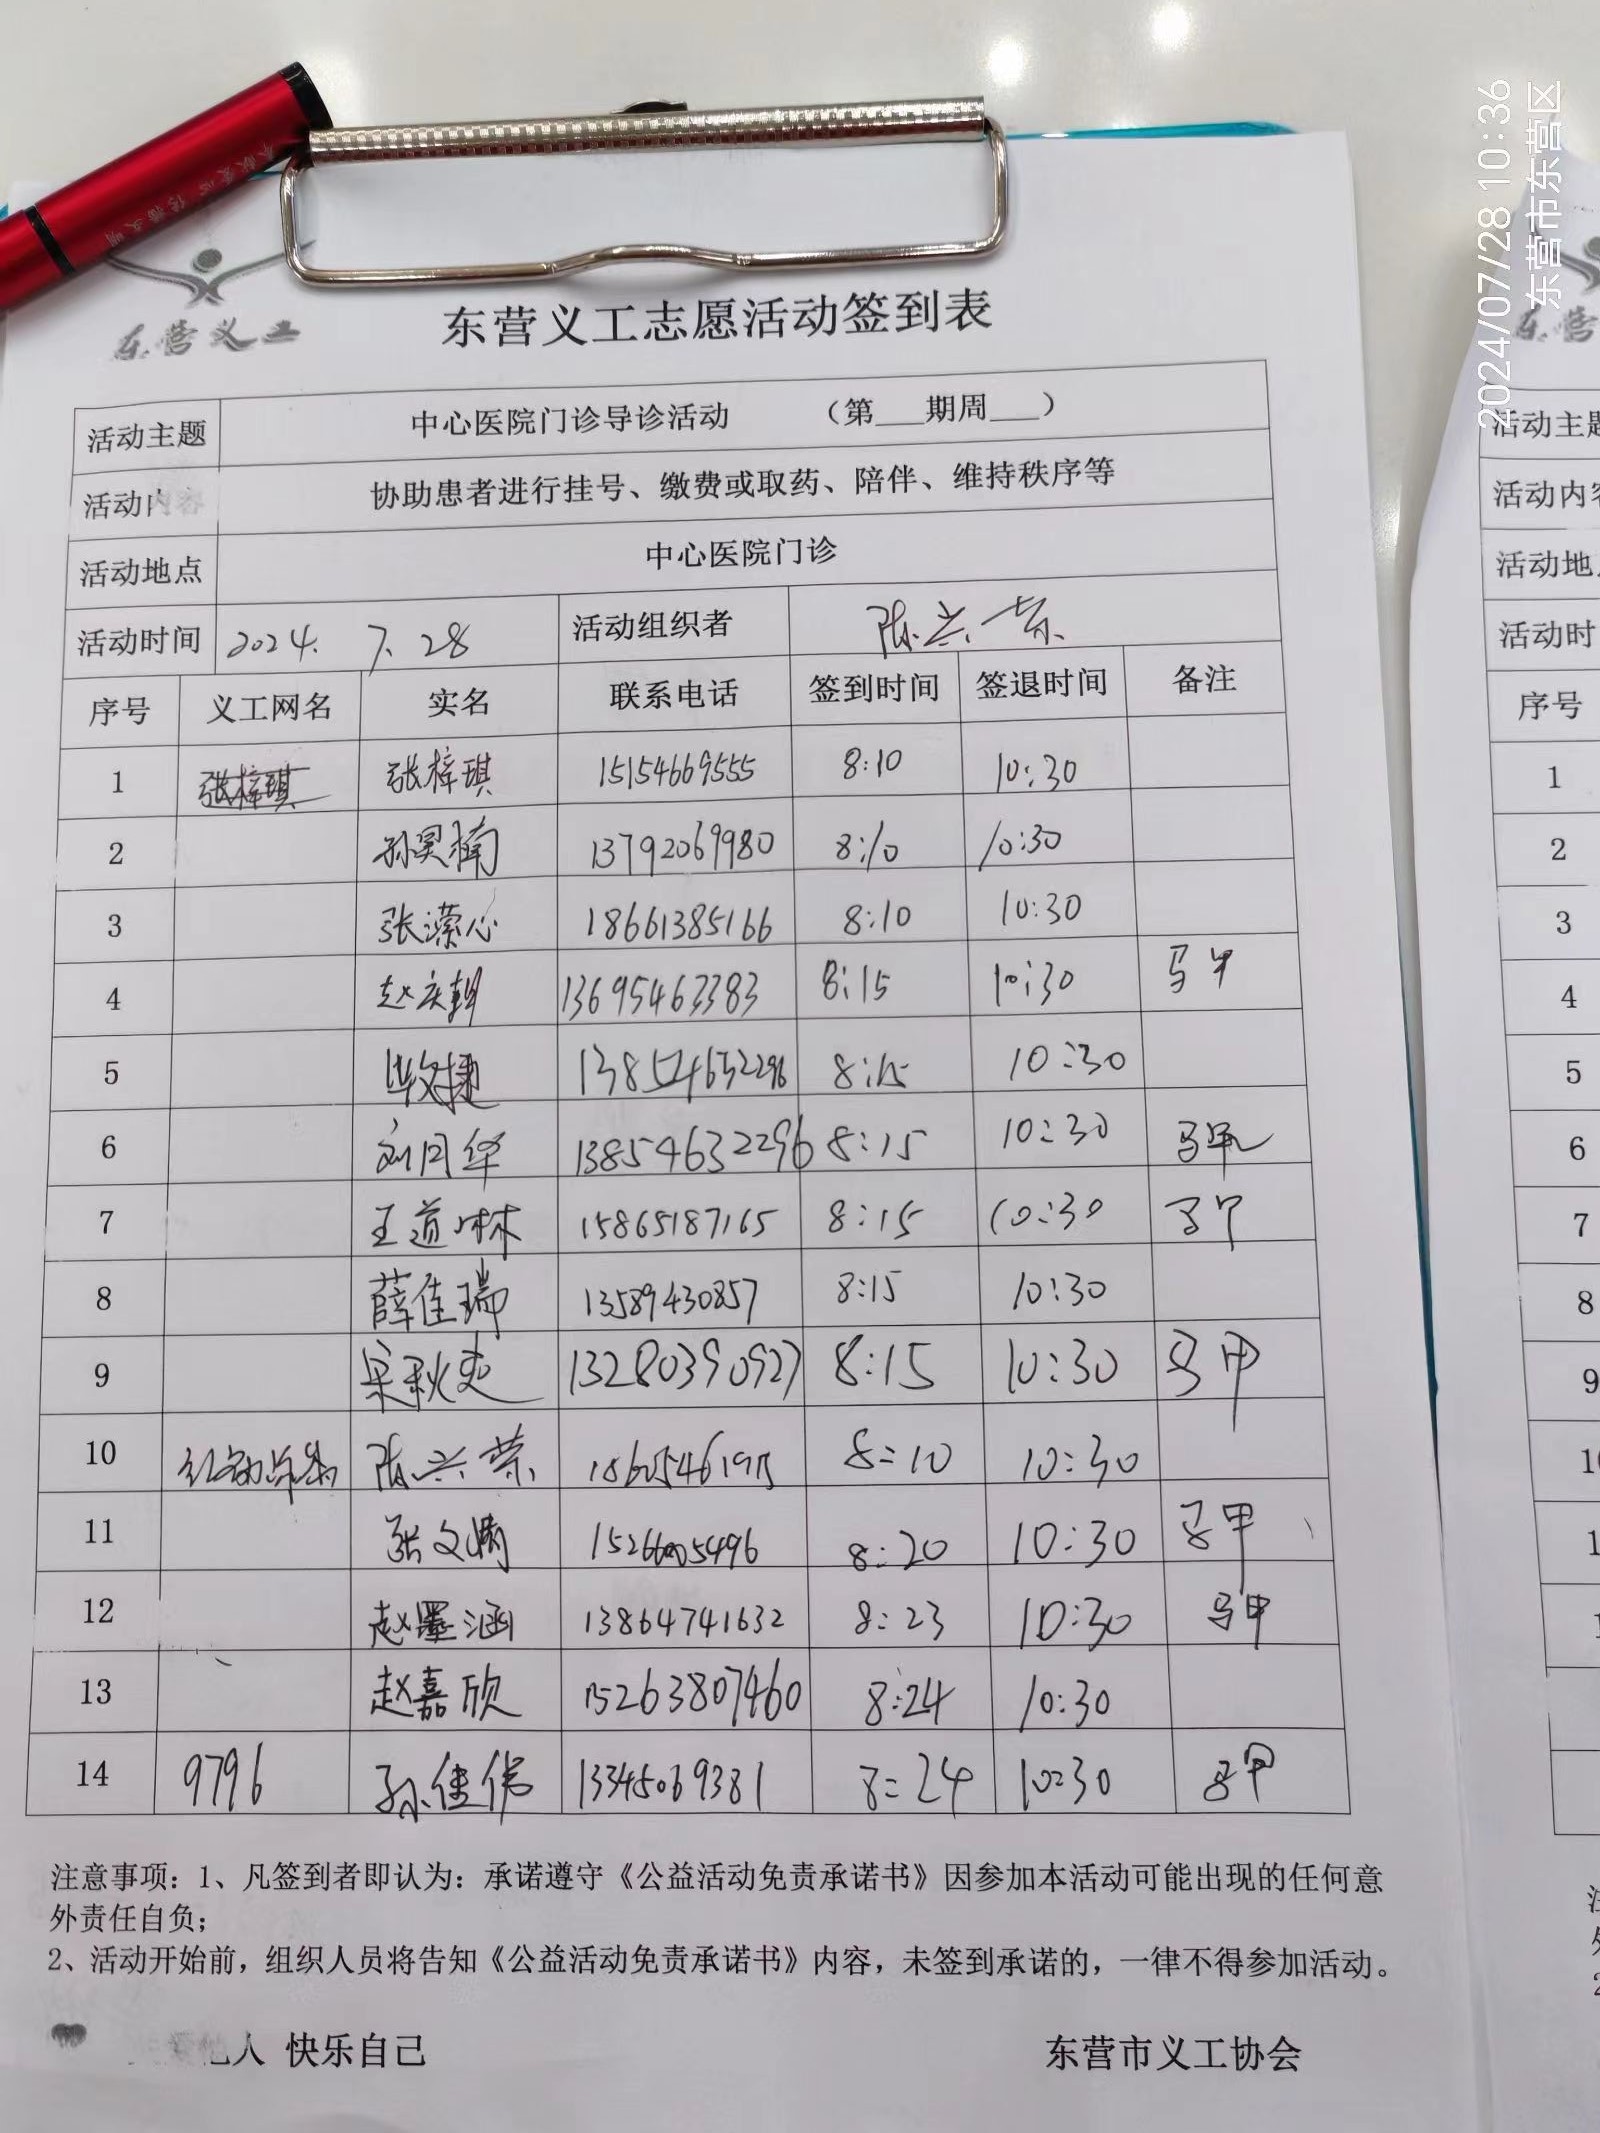 2024/07/28 10:36
东营市东营区
东营义工
东营义工志愿活动签到表
活动主题 中心医院门诊导诊活动 （第___期周___）
活动内容 协助患者进行挂号、缴费或取药、陪伴、维持秩序等
活动地点 中心医院门诊
活动时间 2024. 7. 28 活动组织者 陈兴荣
序号 义工网名 实名 联系电话 签到时间 签退时间 备注
1 张梓琪 张梓琪 15154669555 8:10 10:30
2 孙昊楠 13792069980 8:10 10:30
3 张潆心 18661385166 8:10 10:30
4 赵庆朝 13695463383 8:15 10:30 马甲
5 毕文捷 13854632296 8:15 10:30
6 刘同华 13854632296 8:15 10:30 马甲
7 王道林 15865187165 8:15 10:30 马甲
8 薛佳瑞 13589430857 8:15 10:30
9 宋秋爽 13280390927 8:15 10:30 马甲
10 陈兴荣 8:10 10:30
11 张文 8:20 10:30 马甲
12 赵墨涵 13864741632 8:23 10:30 马甲
13 赵嘉欣 15263807460 8:24 10:30
14 9796 孙佳伟 13345069381 8:24 10:30 马甲
注意事项：1、凡签到者即认为：承诺遵守《公益活动免责承诺书》因参加本活动可能出现的任何意
外责任自负；
2、活动开始前，组织人员将告知《公益活动免责承诺书》内容，未签到承诺的，一律不得参加活动。
他人 快乐自己
东营市义工协会
东营
活动主题
活动内容
活动地
活动时
序号
1
2
3
4
5
6
7
8
9